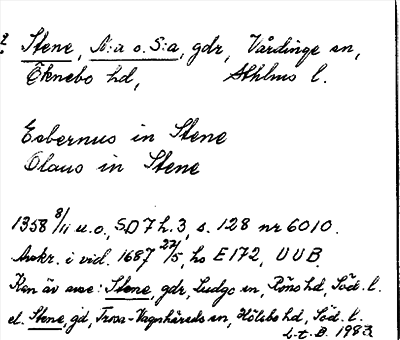 ? Stene, N:a o. S:a, gdr, Vårdinge sn,
Öknebo hd, Sthlms l.
Esbernus in Stene
Olaus in Stene
1358 8/11 u.o., SD 7 h.3, s. 128 nr 6010.
Avskr. i vid. 1687 27/5, hs E 172, UUB.
Kan äv avse: Stene, gdr, Ludgo sn, Rönö hd, Söd. l.
el. Stene, gd, Trosa-Vagnhärads sn, Hölebo hd, Söd. l.
L.t. B. 1983